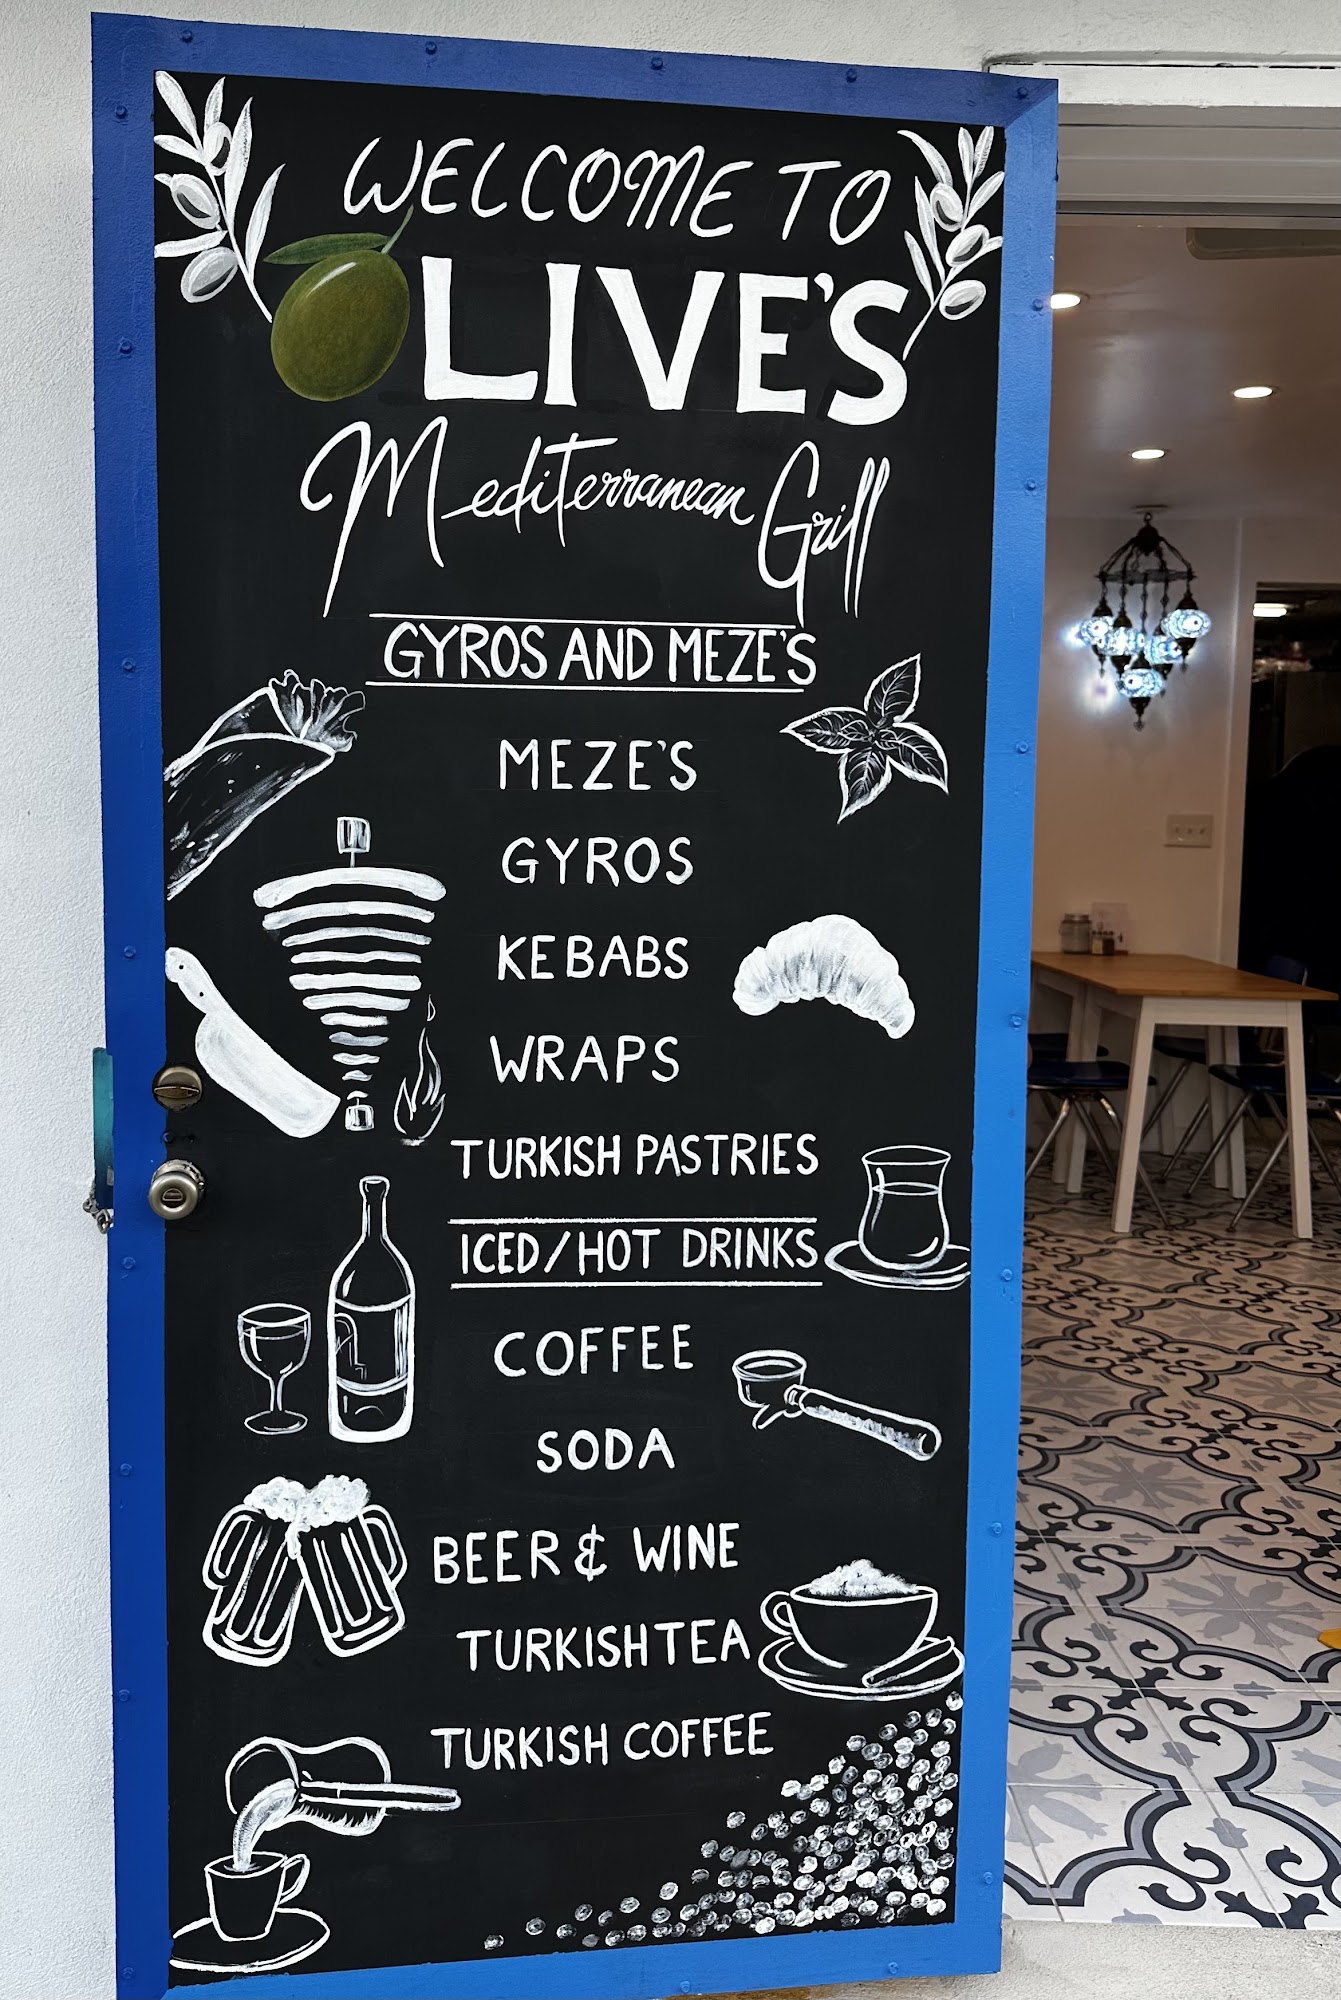 WELCOME TO
OLIVE'S
Mediterranean Grill
GYROS AND MEZE'S
MEZE'S
GYROS
KEBABS
WRAPS
TURKISH PASTRIES
ICED/HOT DRINKS
COFFEE
SODA
BEER & WINE
TURKISH TEA
TURKISH COFFEE